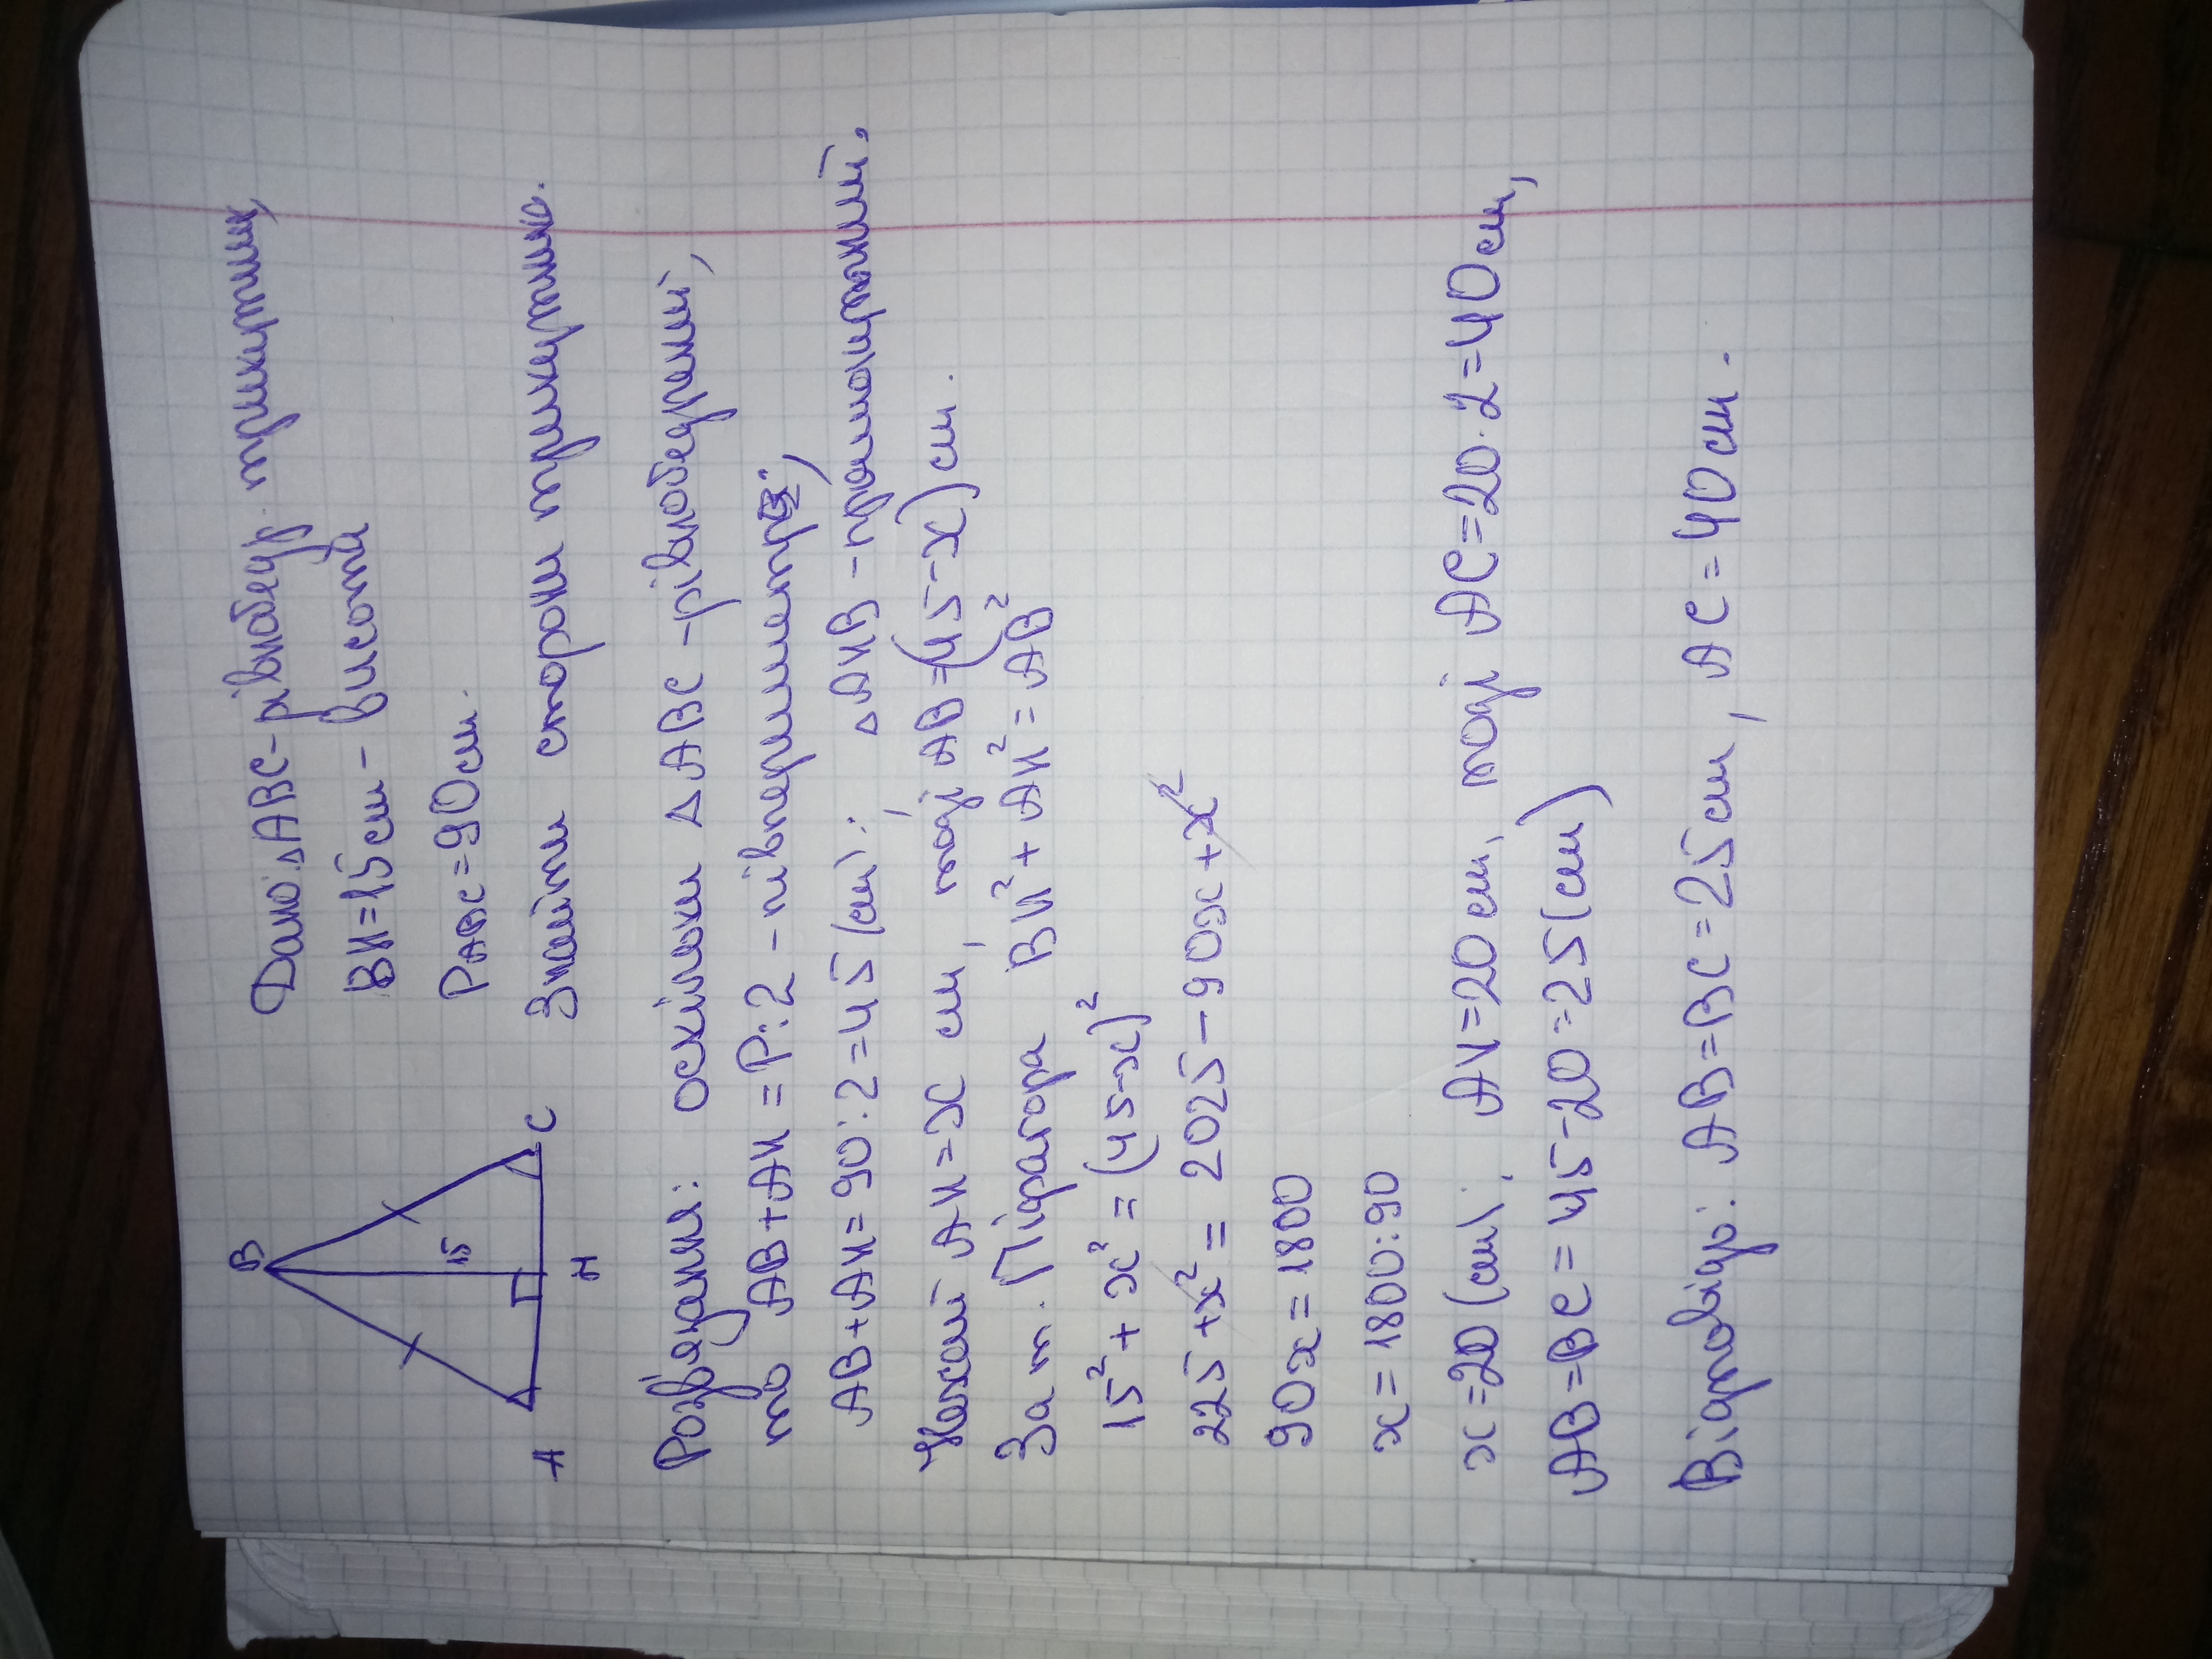 B
15
A
H
C
Дано: △ABC - рівнобедр. трикутник,
BH = 15 см - висота
PABC = 90 см.
Знайти сторони трикутника.
Розв'язання: оскільки △ABC - рівнобедрений,
то AB + AH = P:2 - півпериметр;
AB + AH = 90:2 = 45 (см); △AHB - прямокутний.
Нехай AH = x см, тоді AB = (45-x) см.
За т. Піфагора BH² + AH² = AB²
15² + x² = (45-x)²
225 + x² = 2025 - 90x + x²
90x = 1800
x = 1800:90
x = 20 (см); AH = 20 см, тоді AC = 20·2 = 40 см,
AB = BC = 45-20 = 25 (см)
Відповідь: AB = BC = 25 см, AC = 40 см.